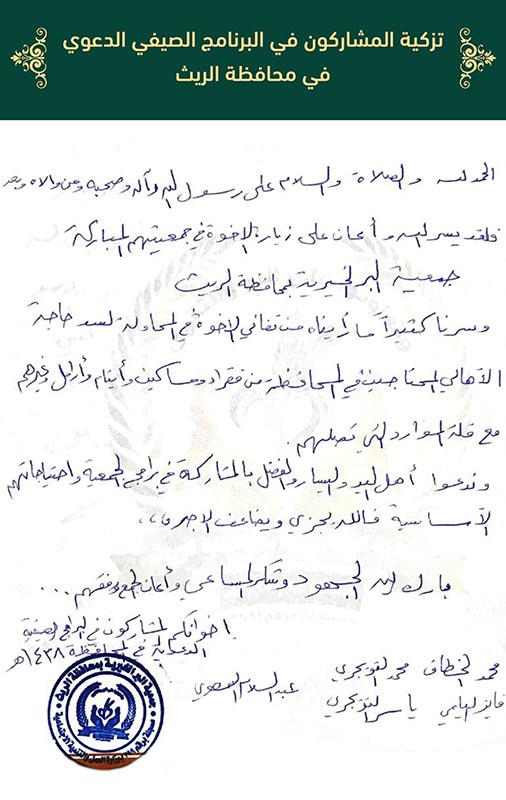 تزكية المشاركون في البرنامج الصيفي الدعوي
في محافظة الريث
الحمد لله والصلاة والسلام على رسول الله وآله وصحبه ومن والاه وبعد
فلقد يسر الله وأعان على زيارة الإخوة في جمعيتهم المباركة
جمعية البر الخيرية بمحافظة الريث
وسرنا كثيراً ما رأيناه من تفاني الإخوة في المحاولة لسد حاجة
الأهالي المحتاجين في المحافظة من فقراء ومساكين وأيتام وأرامل وغيرهم
مع قلة الموارد التي تصلهم.
وندعوا أهل اليد واليسار والفضل بالمشاركة في برامج الجمعية واحتياجاتهم
الأساسية فالله يجزي ويضاعف الأجر،،
بارك الله الجهود وشكر المساعي وأعان الجميع ووفقهم...
اخوانكم المشاركون في البرامج الصيفية
الدعوية في المحافظة ١٤٣٨هـ
محمد الخطاف محمد التويجري
عبدالسلام
فايز ياسر التويجري
جمعية البر الخيرية بمحافظة الريث